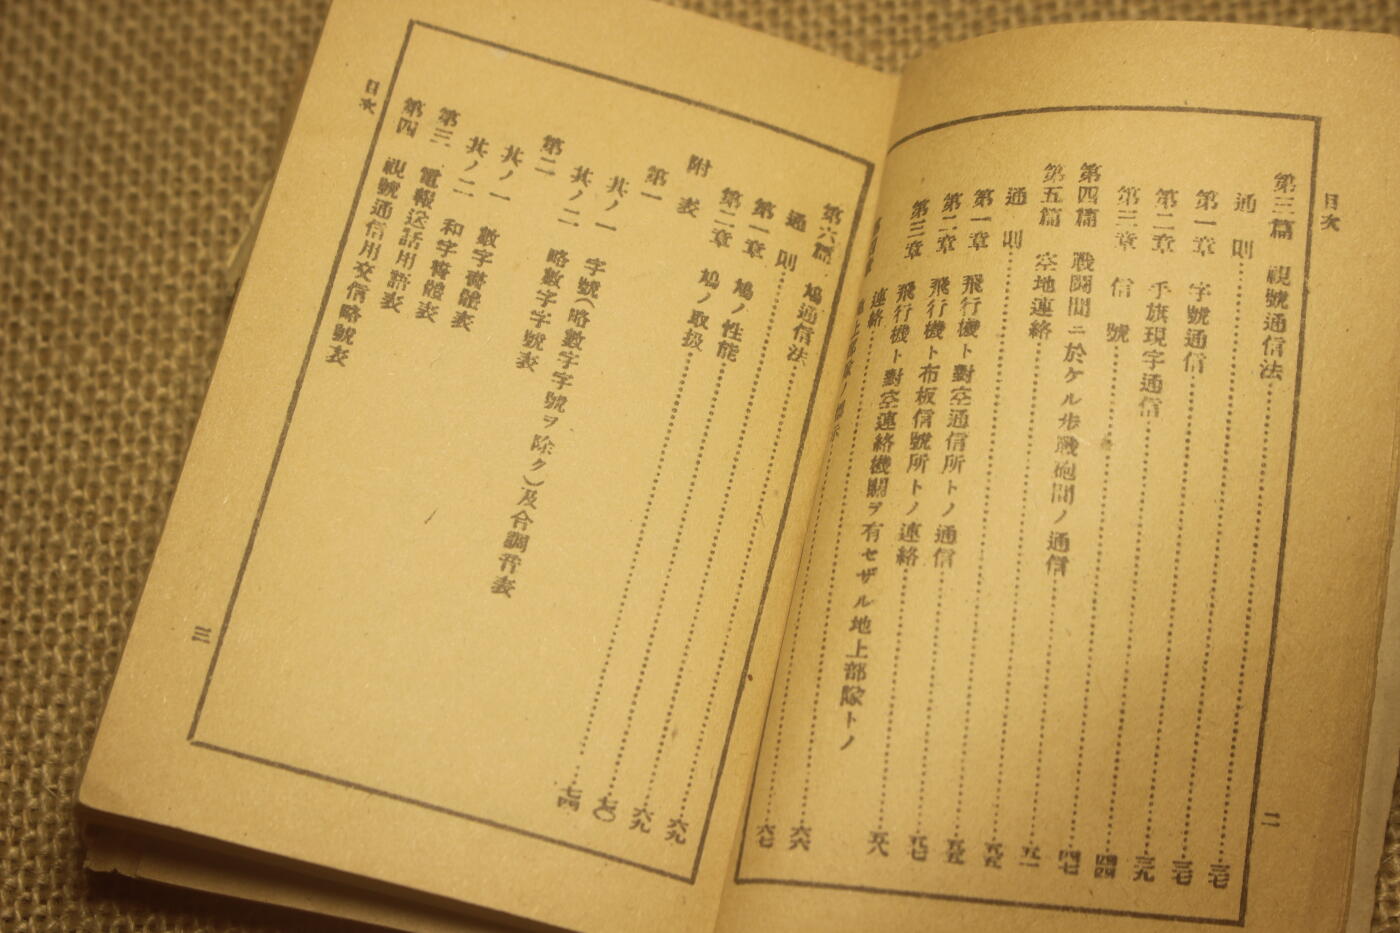 目次
第三篇 視號通信法 三七
通則 三七
第一章 字號通信 三九
第二章 手旗現字通信 四四
第三章 信號 四七
第四篇 戰鬪間ニ於ケル步戰砲間ノ通信
第五篇 空地連絡 五一
通則
第一章 飛行機ト對空通信所トノ通信
第二章 飛行機ト布板信號所トノ連絡 五七
第三章 飛行機ト對空連絡機關ヲ有セザル地上部隊トノ
連絡 五八
二
目次
第六篇 鳩通信法 六九
通則 六九
第一章 鳩ノ性能 七〇
第二章 鳩ノ取扱 七四
附表
第一
其ノ一 字號(略數字字號ヲ除ク)及合調音表
其ノ二 略數字字號表
第二
其ノ一 數字書體表
其ノ二 和字書體表
第三 電報送話用語表
第四 視號通信用交信略號表
三